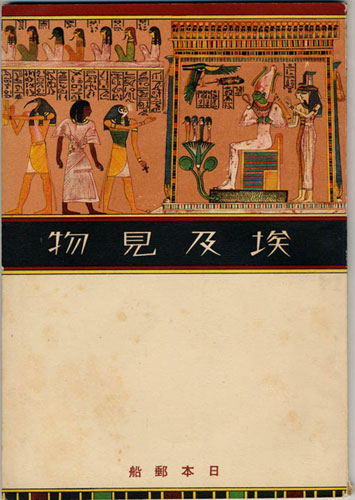 埃及見物
日本郵船